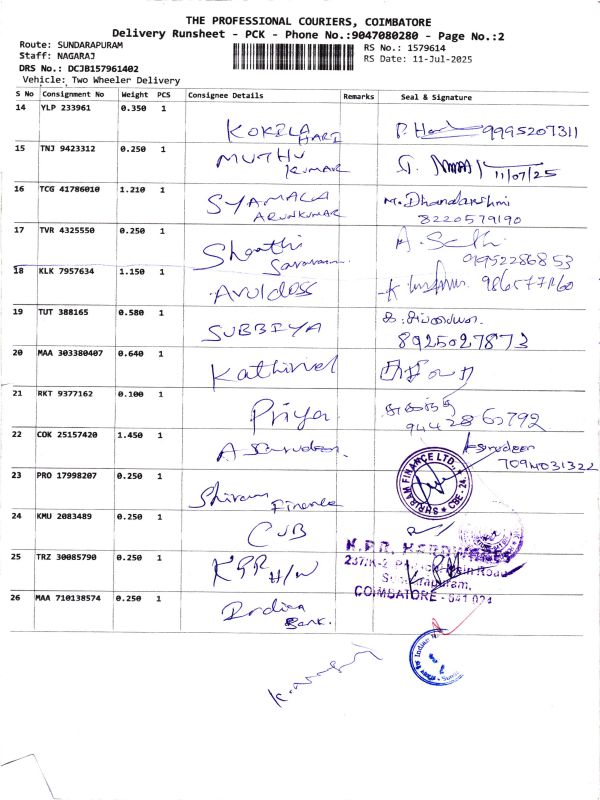 THE PROFESSIONAL COURIERS, COIMBATORE
Delivery Runsheet - PCK - Phone No.:9047080280 - Page No.:2
Route: SUNDARAPURAM
RS No.: 1579614
Staff: NAGARAJ
RS Date: 11-Jul-2025
DRS No.: DCJB157961402
Vehicle: Two Wheeler Delivery
S No Consignment No Weight PCS Consignee Details Remarks Seal & Signature
14 YLP 233961 0.350 1
KOKILA HARI 9995207311
15 TNJ 9423312 0.250 1
MUTHU
KUMAR 11/07/25
16 TCG 41786010 1.210 1
SYAMALA M. Dhandakshmi
ARUNKUMAR 8220579190
17 TVR 4325550 0.250 1
18 KLK 7957634 1.150 1
Aruldoss
19 TUT 388165 0.580 1
SUBBIYA 8925027873
20 MAA 303380407 0.640 1
Kathirvel
21 RKT 9377162 0.100 1
Priya
22 COK 25157420 1.450 1
23 PRO 17998207 0.250 1
SHRIRAM FINANCE LTD., CBE-24
Shiram Finance
24 KMU 2083489 0.250 1
CUB
25 TRZ 30085790 0.250 1
KPR H/W
K.P.R. HARDWARES
Main Road
COIMBATORE - 641 024
26 MAA 710138574 0.250 1
Indian
Bank.